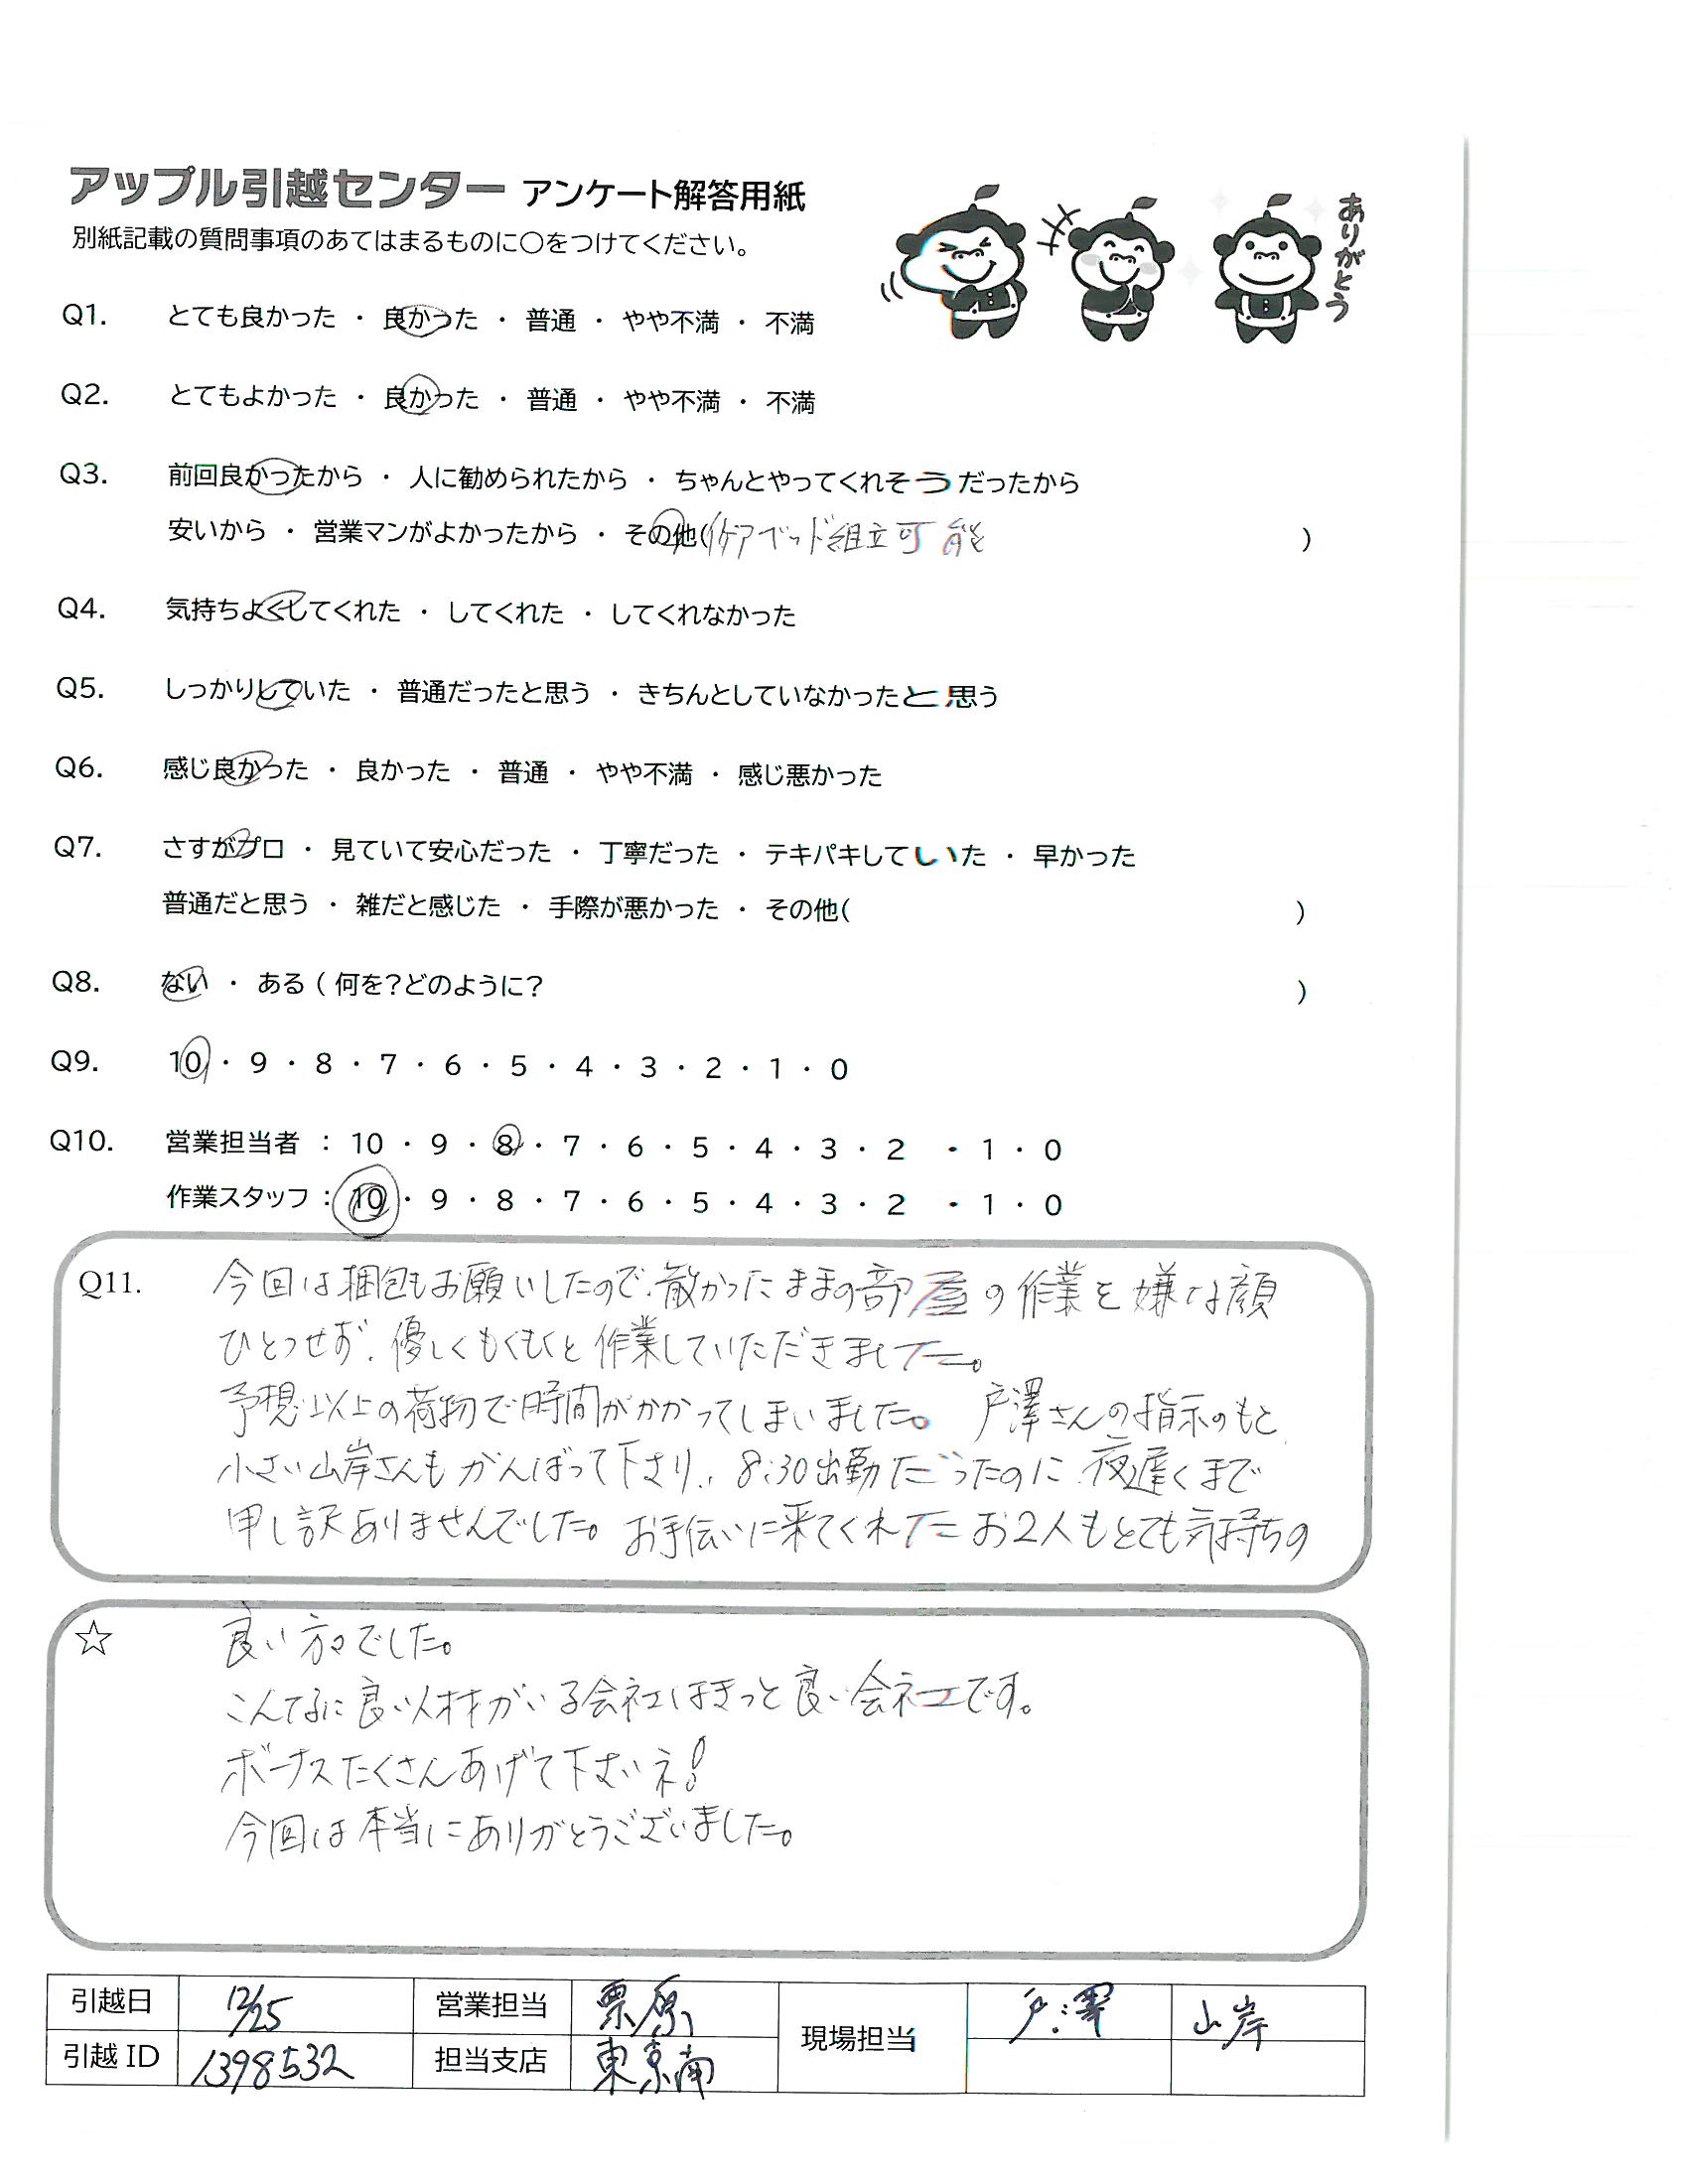 アップル引越センター アンケート解答用紙
ありがとう
別紙記載の質問事項のあてはまるものに〇をつけてください。
Q1. とても良かった ・ 良かった ・ 普通 ・ やや不満 ・ 不満
Q2. とてもよかった ・ 良かった ・ 普通 ・ やや不満 ・ 不満
Q3. 前回良かったから ・ 人に勧められたから ・ ちゃんとやってくれそうだったから
安いから ・ 営業マンがよかったから ・ その他(イケアベッド組立可能 )
Q4. 気持ちよくしてくれた ・ してくれた ・ してくれなかった
Q5. しっかりしていた ・ 普通だったと思う ・ きちんとしていなかったと思う
Q6. 感じ良かった ・ 良かった ・ 普通 ・ やや不満 ・ 感じ悪かった
Q7. さすがプロ ・ 見ていて安心だった ・ 丁寧だった ・ テキパキしていた ・ 早かった
普通だと思う ・ 雑だと感じた ・ 手際が悪かった ・ その他( )
Q8. ない ・ ある ( 何を?どのように? )
Q9. 10 ・ 9 ・ 8 ・ 7 ・ 6 ・ 5 ・ 4 ・ 3 ・ 2 ・ 1 ・ 0
Q10. 営業担当者 : 10 ・ 9 ・ 8 ・ 7 ・ 6 ・ 5 ・ 4 ・ 3 ・ 2 ・ 1 ・ 0
作業スタッフ : 10 ・ 9 ・ 8 ・ 7 ・ 6 ・ 5 ・ 4 ・ 3 ・ 2 ・ 1 ・ 0
Q11. 今回は梱包もお願いしたので、散かったままの部屋の作業を嫌な顔
ひとつせず、優しくもくもくと作業していただきました。
予想以上の荷物で時間がかかってしまいました。 戸澤さんの指示のもと
小さい山岸さんもがんばって下さり、8:30出勤だったのに夜遅くまで
申し訳ありませんでした。お手伝いに来てくれたお2人もとても気持ちの
☆ 良い方々でした。
こんなに良い人材がいる会社はきっと良い会社です。
ボーナスたくさんあげて下さいネ!
今回は本当にありがとうございました。
引越日 12/25 営業担当 栗原 現場担当 戸澤 山岸
引越ID 1398532 担当支店 東京南